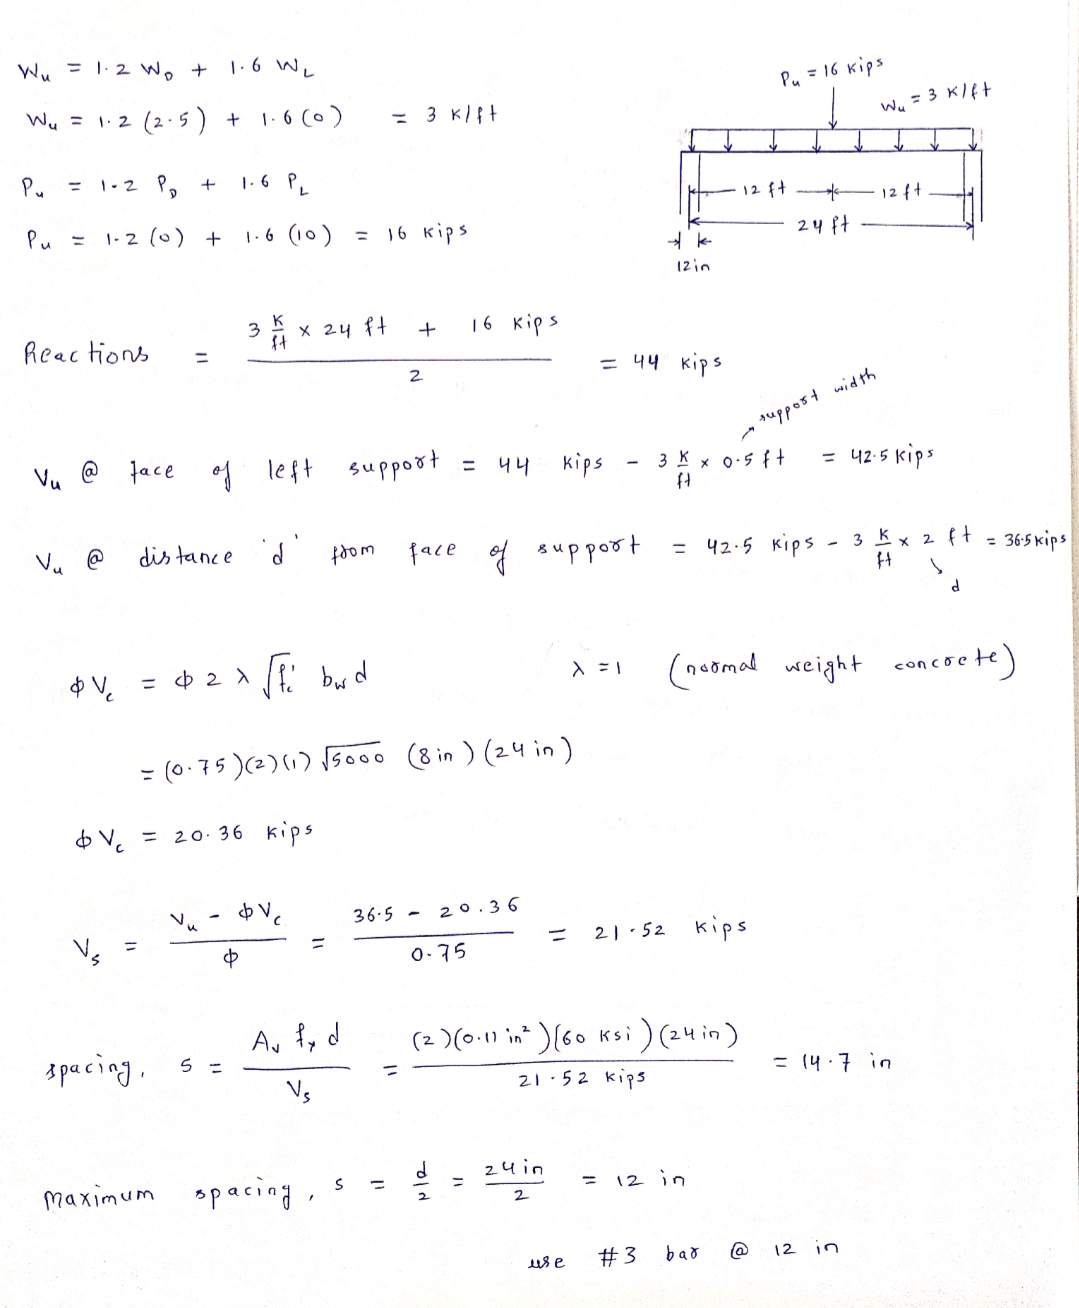 Wu = 1.2 WD + 1.6 WL
Wu = 1.2 (2.5) + 1.6 (0) = 3 K/ft
Pu = 1.2 PD + 1.6 PL
Pu = 1.2 (0) + 1.6 (10) = 16 Kips
Pu = 16 Kips
Wu = 3 K/ft
12 ft 12 ft
24 ft
12 in
Reactions = (3 K/ft x 24 ft + 16 Kips) / 2 = 44 Kips
support width
Vu @ face of left support = 44 Kips - 3 K/ft x 0.5 ft = 42.5 Kips
Vu @ distance 'd' from face of support = 42.5 Kips - 3 K/ft x 2 ft = 36.5 Kips
d
φVc = φ 2 λ √fc' bw d λ = 1 (normal weight concrete)
= (0.75)(2)(1) √5000 (8 in) (24 in)
φVc = 20.36 Kips
Vs = (Vu - φVc) / φ = (36.5 - 20.36) / 0.75 = 21.52 Kips
spacing, s = Av fy d / Vs = (2)(0.11 in²)(60 Ksi)(24 in) / 21.52 Kips = 14.7 in
Maximum spacing, s = d/2 = 24 in / 2 = 12 in
use #3 bar @ 12 in